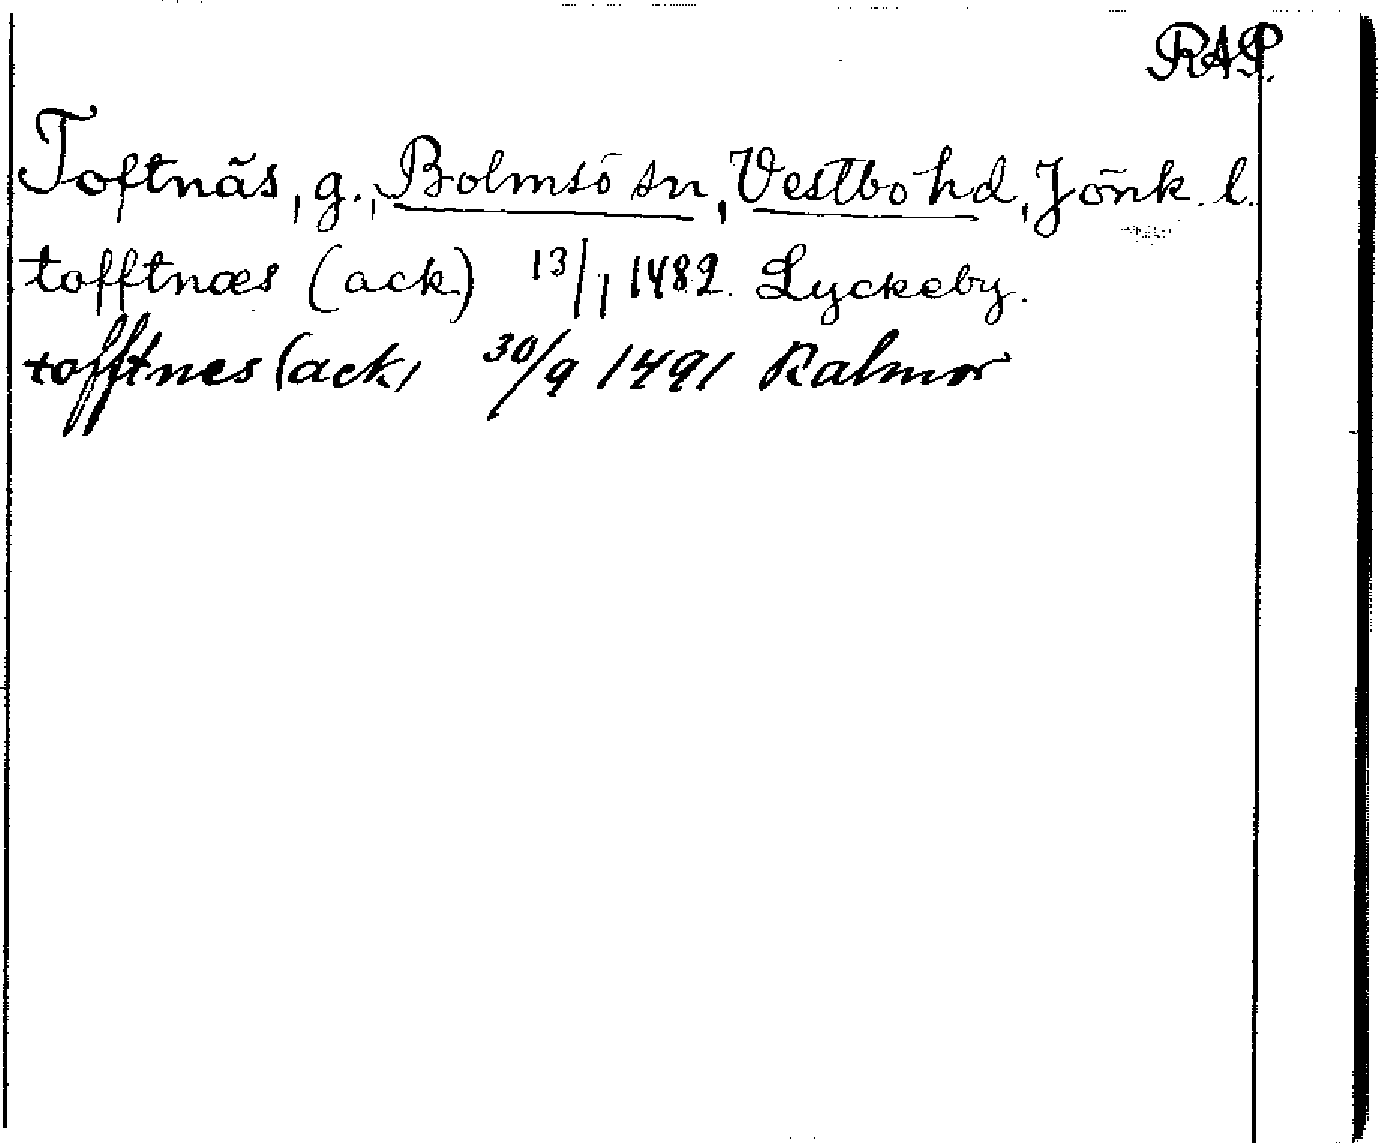 RAP.
Toftnäs, g., Bolmsö sn, Vestbo hd, Jönk. l.
tofftnæs (ack.) 13/1 1482. Lyckeby.
tofftnes (ack) 30/9 1491 Kalmar